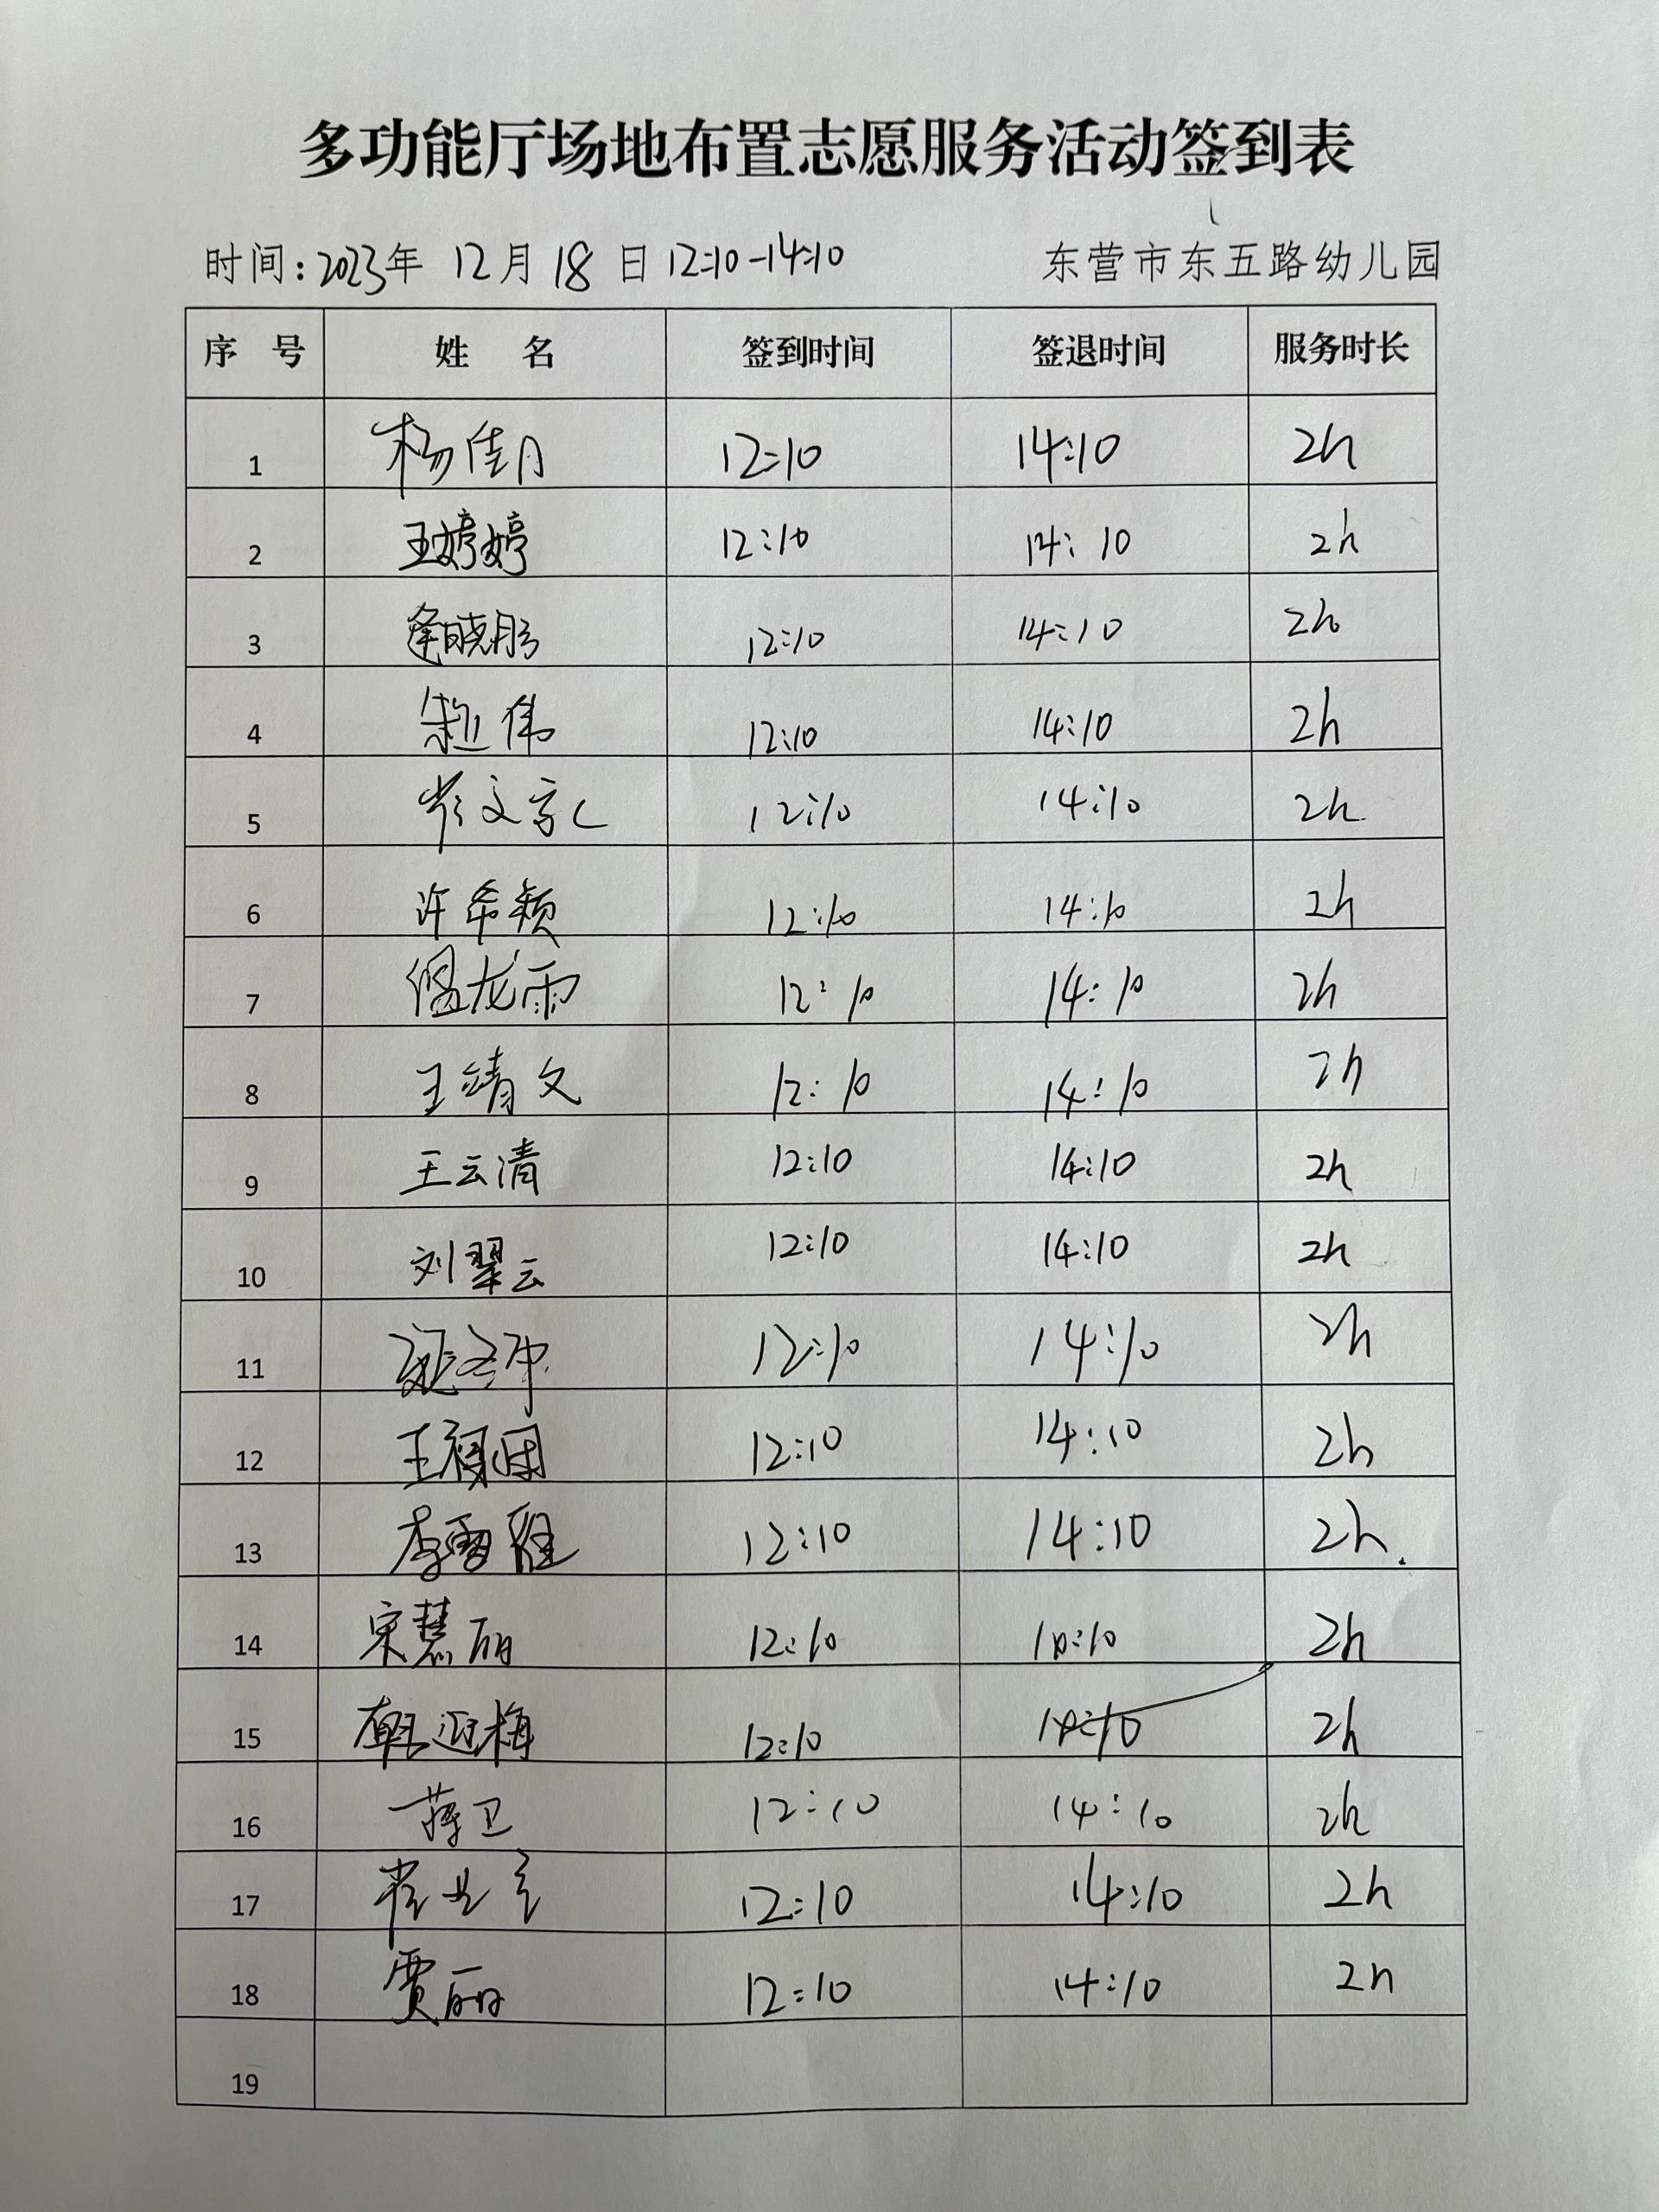 多功能厅场地布置志愿服务活动签到表
时间:2023年 12月 18 日 12:10-14:10 东营市东五路幼儿园
序 号 姓 名 签到时间 签退时间 服务时长
1 杨倩 12:10 14:10 2h
2 王婷婷 12:10 14:10 2h
3 逄晓彤 12:10 14:10 2h
4 伟 12:10 14:10 2h
5 12:10 14:10 2h
6 许希颖 12:10 14:10 2h
7 龙雨 12:10 14:10 2h
8 王靖文 12:10 14:10 2h
9 王云清 12:10 14:10 2h
10 刘翠云 12:10 14:10 2h
11 12:10 14:10 2h
12 王 12:10 14:10 2h
13 李雪 12:10 14:10 2h.
14 宋慧丽 12:10 2h
15 韩迎梅 12:10 2h
16 蒋卫 12:10 14:10 2h
17 12:10 14:10 2h
18 贾丽 12:10 14:10 2h
19